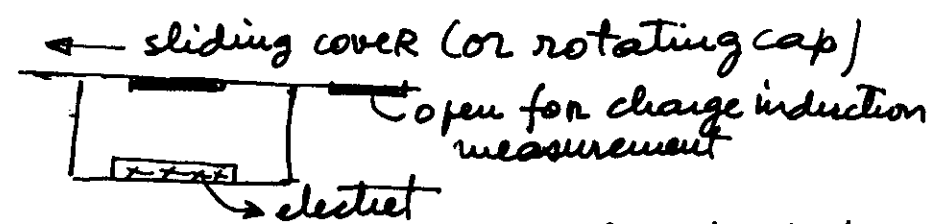 sliding cover (or rotating cap)
open for charge induction
measurement
electret